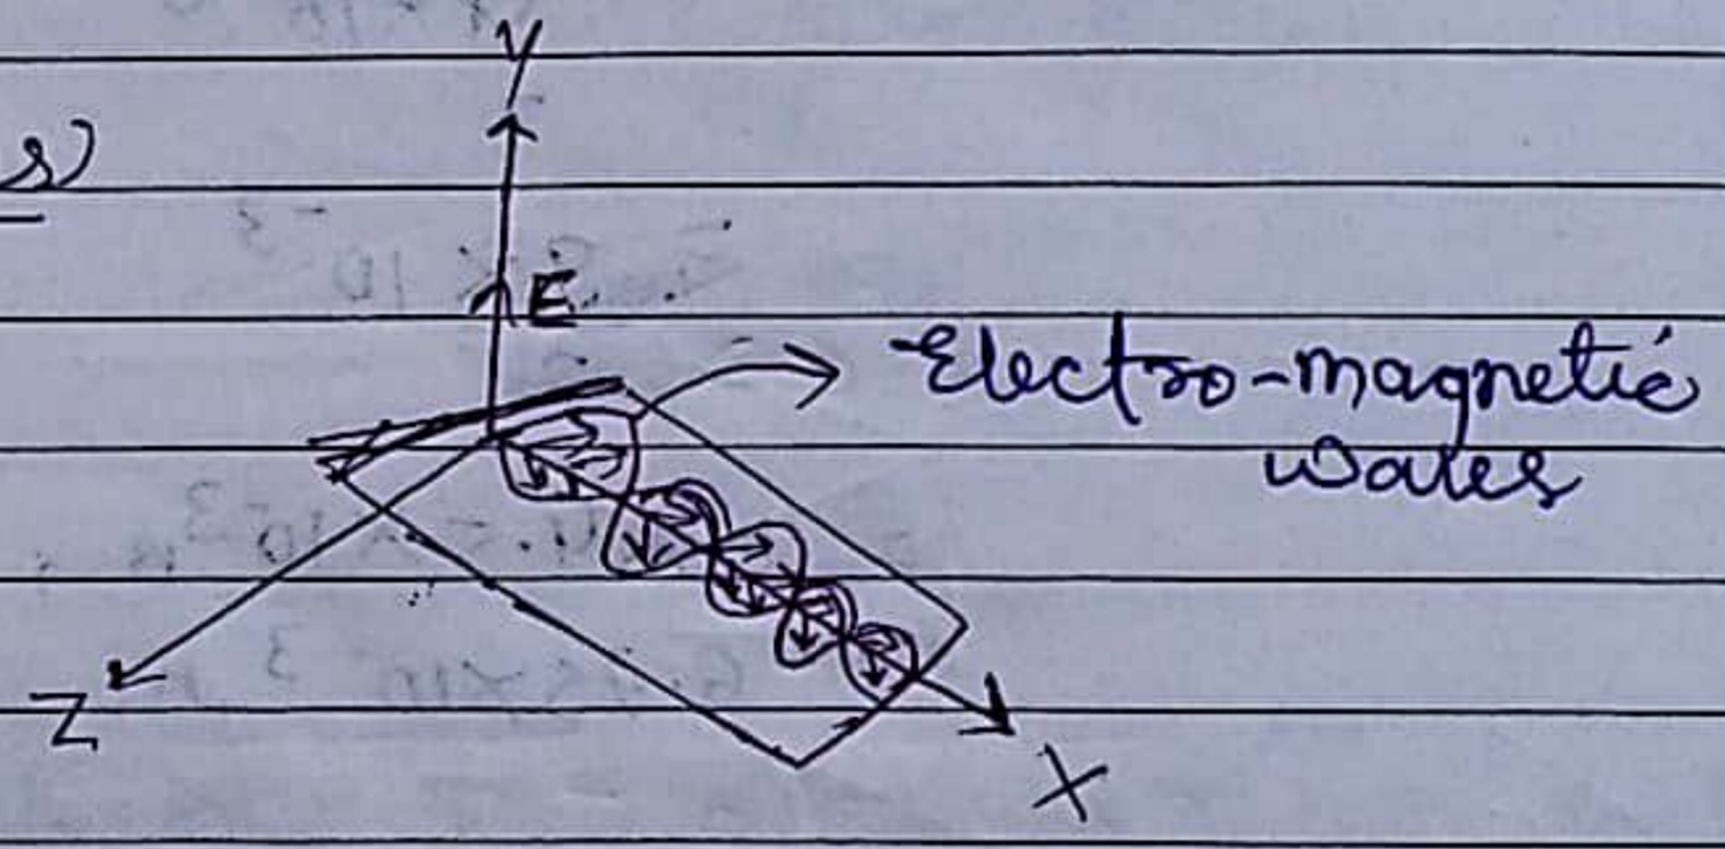 Y
s)
E
Electro-magnetic
waves
Z
X